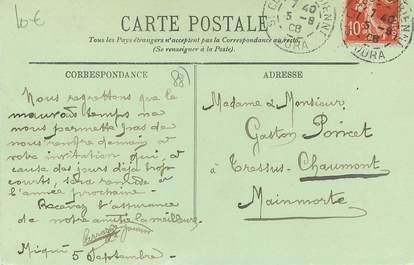 10€
CARTE POSTALE
Tous les Pays étrangers n'acceptent pas la Correspondance au recto.
(Se renseigner à la Poste).
7 40
5 -9
08
JURA
7 40
5 -9
08
JURA
10
CORRESPONDANCE
ADRESSE
Nous regrettons que le
mauvais temps ne
nous permette pas de
nous rendre demain à
votre invitation qui, à
cause des jours déjà bien
courts, sera remise à
l'année prochaine
Recevez l'assurance
de notre amitié la meilleure.
5 Septembre
Madame & Monsieur
Gaston Poncet
à Tressus-Chaumont
Mainmorte